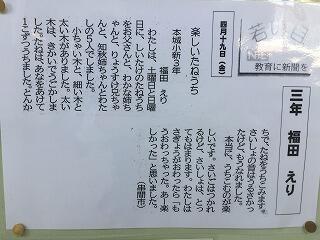 若い目
教育に新聞を
三年 福田 えり
四月十九日(金)
楽しいたねうち
本城小新3年
福田 えり
わたしは、土曜日と日曜
日に、しいたけのたねうち
をお父さんと、わかな姉ち
ゃんと、りょうすけ兄ちゃ
んと、知秋姉ちゃんとわた
しの5人でしました。
小ちゃい木と、細い木と
太い木がありました。太い
木は、きかいでうごかしま
した。たねは、あなをあけて
1こずつうちました。とんか
ちで、たねをうちこみます。
さいしょの方はうるさかっ
たけど、もうなれました。
本当に、うちこむのが楽
しいです。さいごはつかれ
るけど、さいしょは、とっ
てもはまります。わたしは
さぎょうがおわったら「も
うおわっちゃった。あー楽
しかった」と思いました。
(串間市)